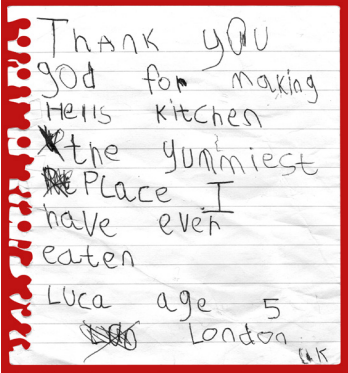 Thank you
god for making
Hells kitchen
the yummiest
Place I
have ever
eaten
Luca age 5
London UK